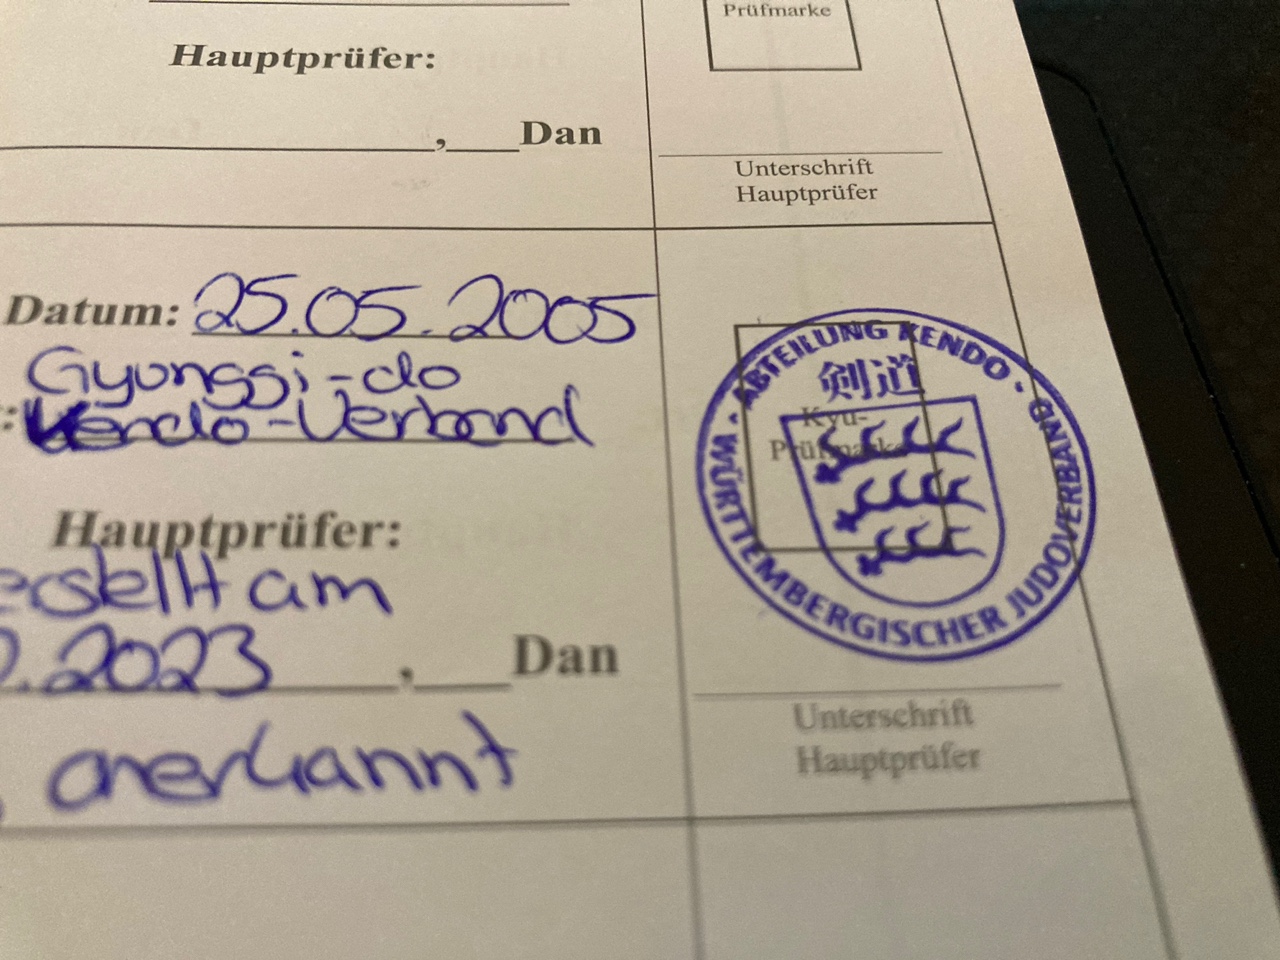 Prüfmarke
Hauptprüfer:
, Dan
Unterschrift
Hauptprüfer
Datum: 25.05.2005
Gyonggi-do
: Kendo-Verband
ABTEILUNG KENDO · WÜRTTEMBERGISCHER JUDOVERBAND ·
剣道
Kyu-
Prüfmarke
Hauptprüfer:
erstellt am
.2023 , Dan
anerkannt
Unterschrift
Hauptprüfer